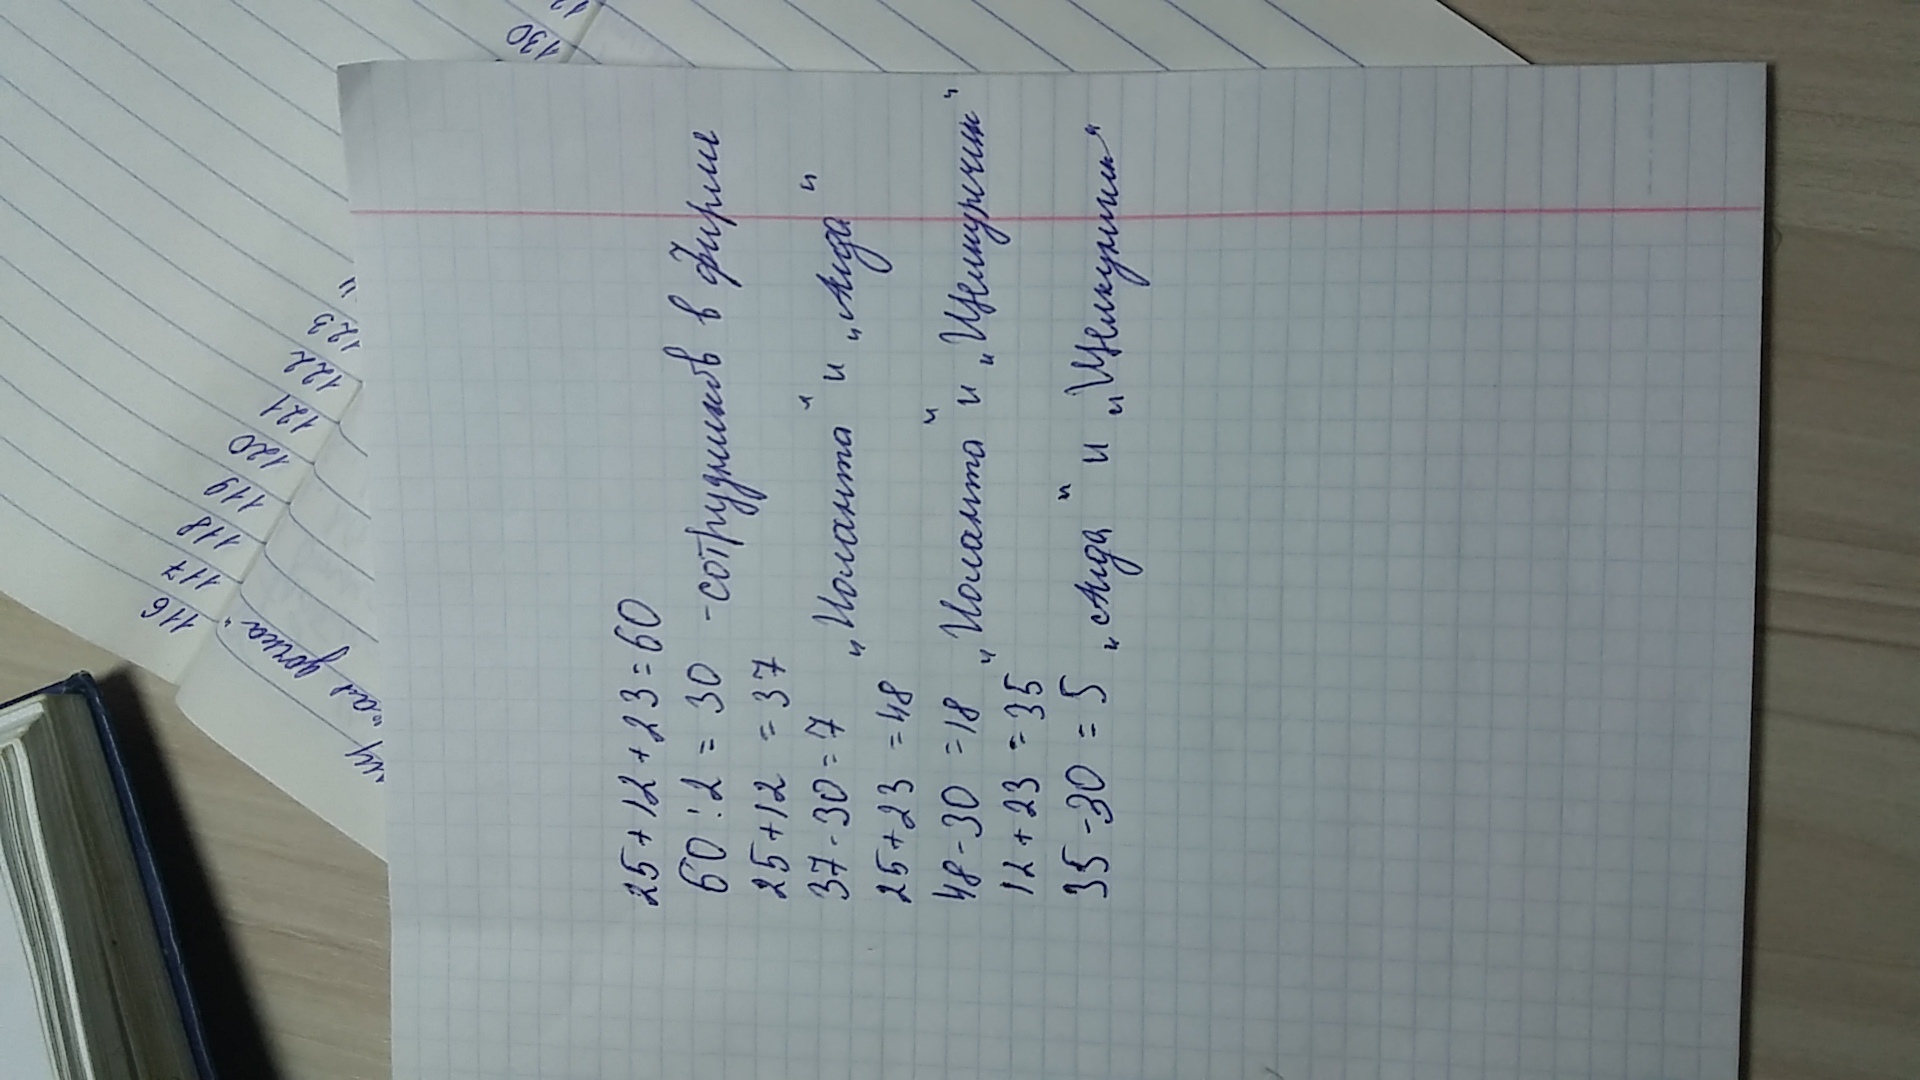 25+12+23=60
60:2=30 -сотрудников в фирме
25+12=37
37-30=7 „Иоланта" и „Аида"
25+23=48
48-30=18 „Иоланта" и „Щелкунчик"
12+23=35
35-30=5 „Аида" и „Щелкунчик"
116
117
118
119
120
121
122
123
130